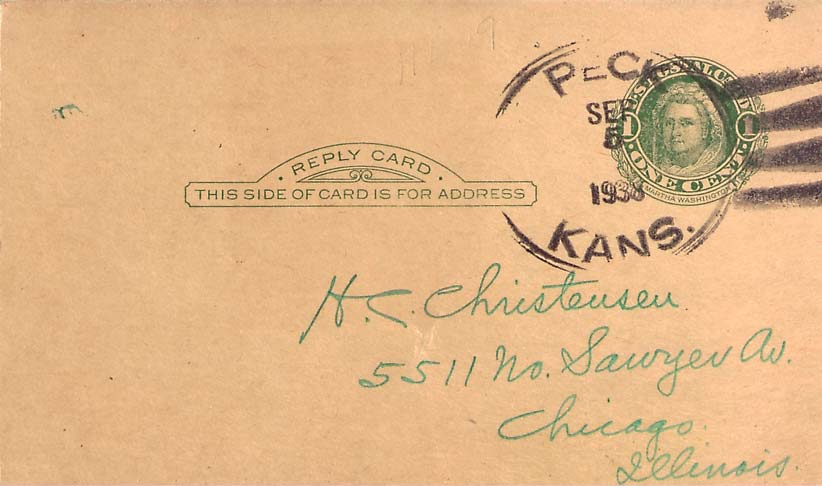 PECK
SEP
5
1938
KANS.
POSTAL CARD
1 1
ONE CENT
MARTHA WASHINGTON
· REPLY CARD ·
THIS SIDE OF CARD IS FOR ADDRESS
H. C. Christensen
5511 No. Sawyer Av.
Chicago.
Illinois.